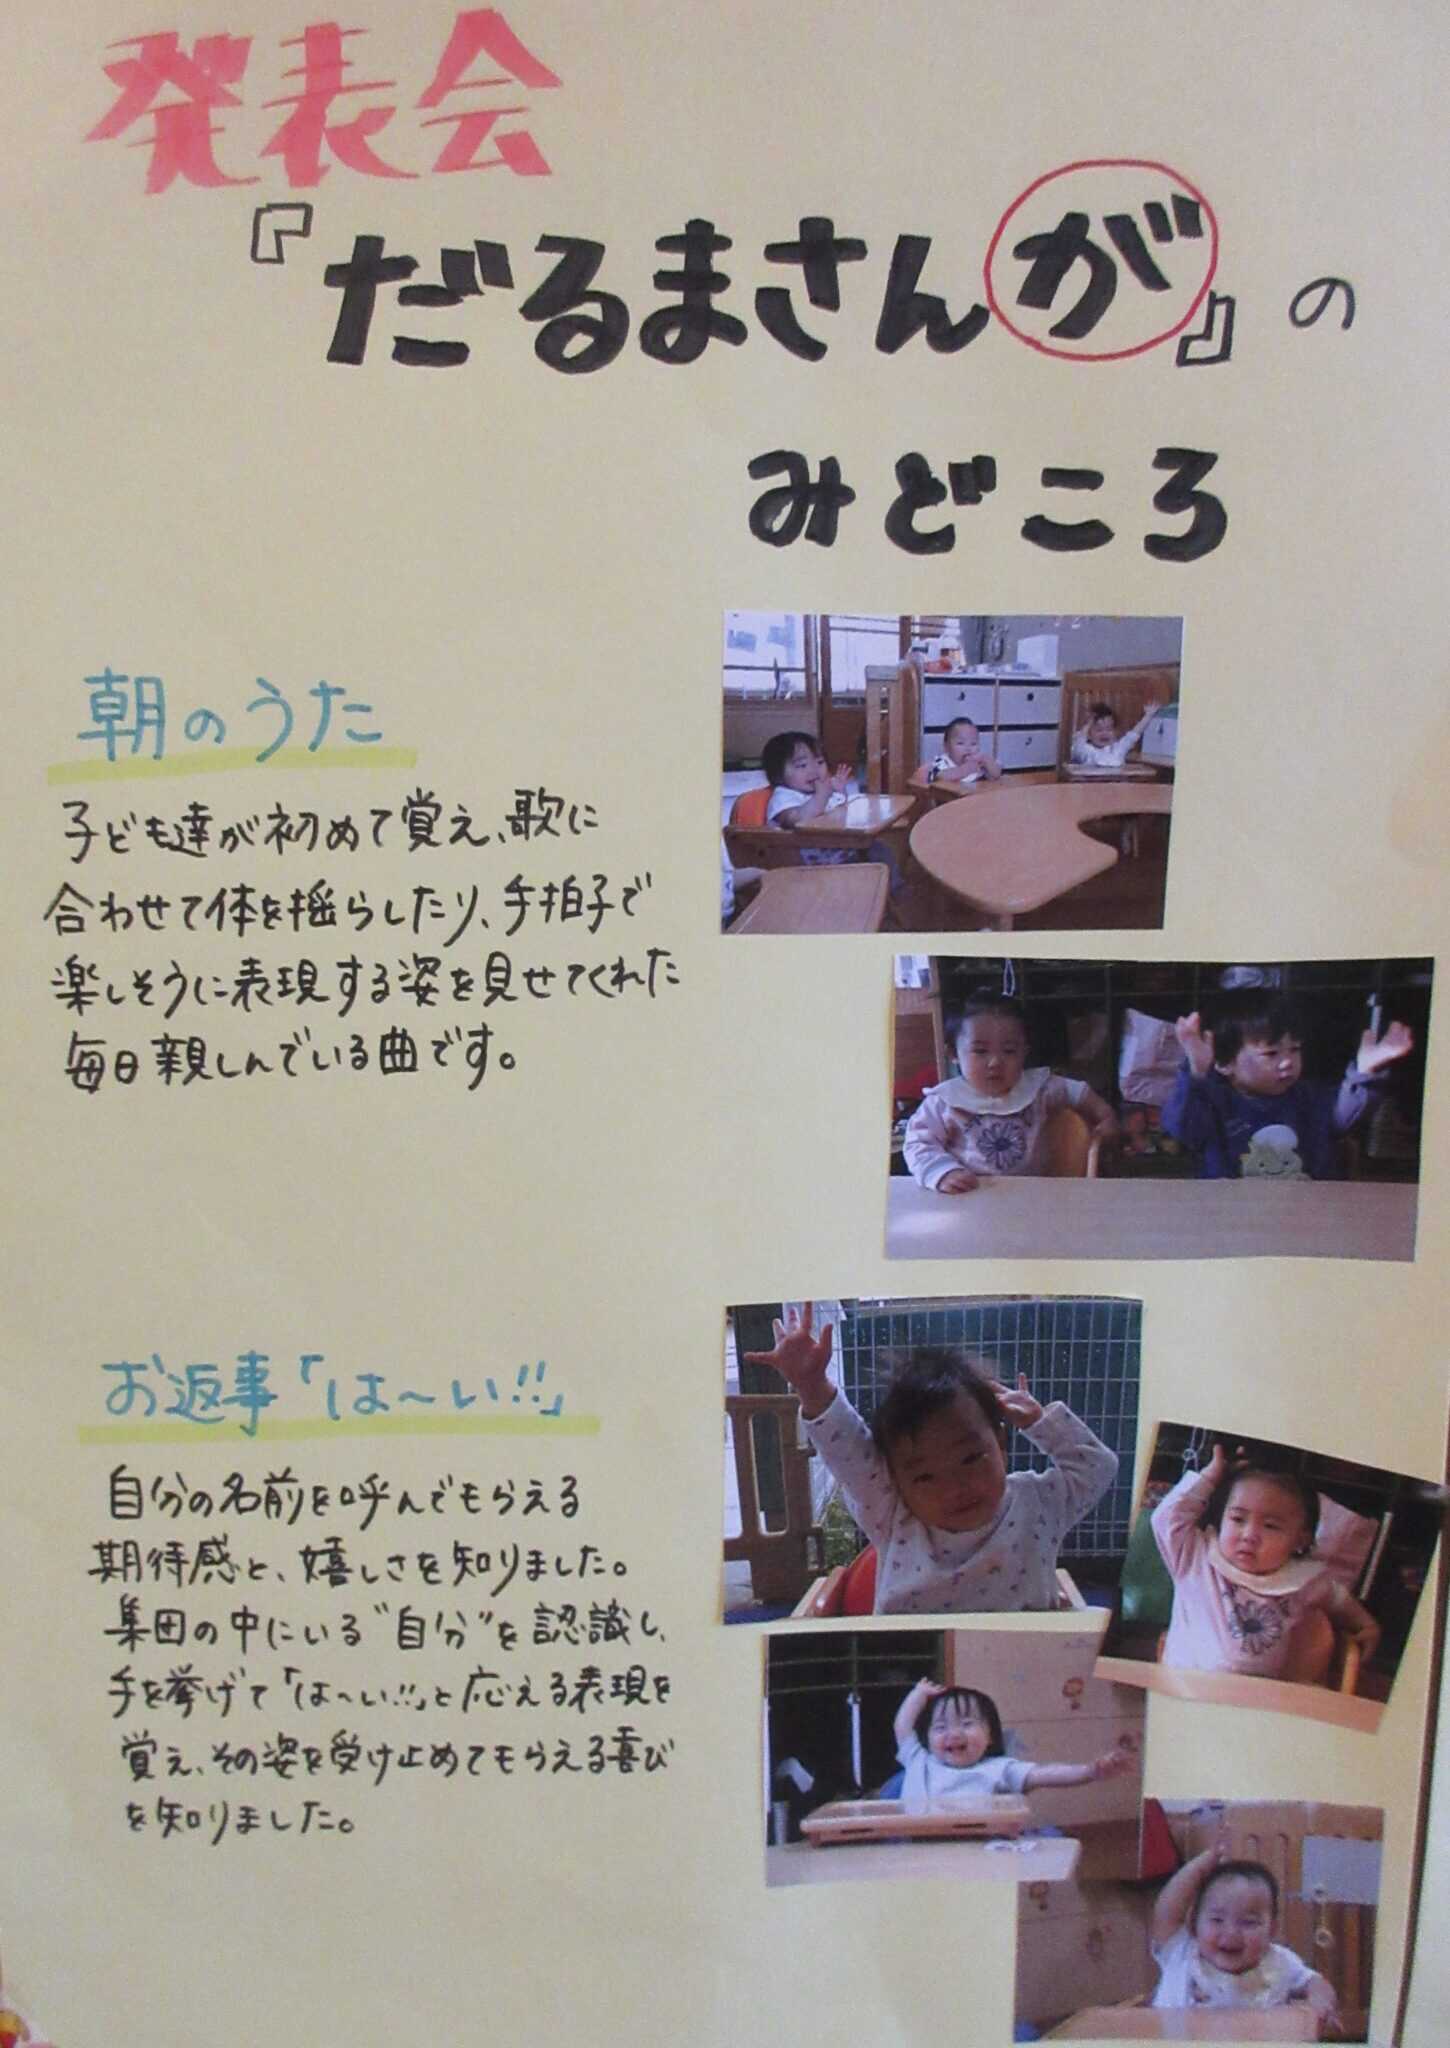 発表会
『だるまさんが』の
みどころ
朝のうた
子ども達が初めて覚え、歌に
合わせて体を揺らしたり、手拍子で
楽しそうに表現する姿を見せてくれた
毎日親しんでいる曲です。
お返事「は～い!!」
自分の名前を呼んでもらえる
期待感と、嬉しさを知りました。
集団の中にいる"自分"を認識し、
手を挙げて「は～い!!」と応える表現を
覚え、その姿を受け止めてもらえる喜び
を知りました。